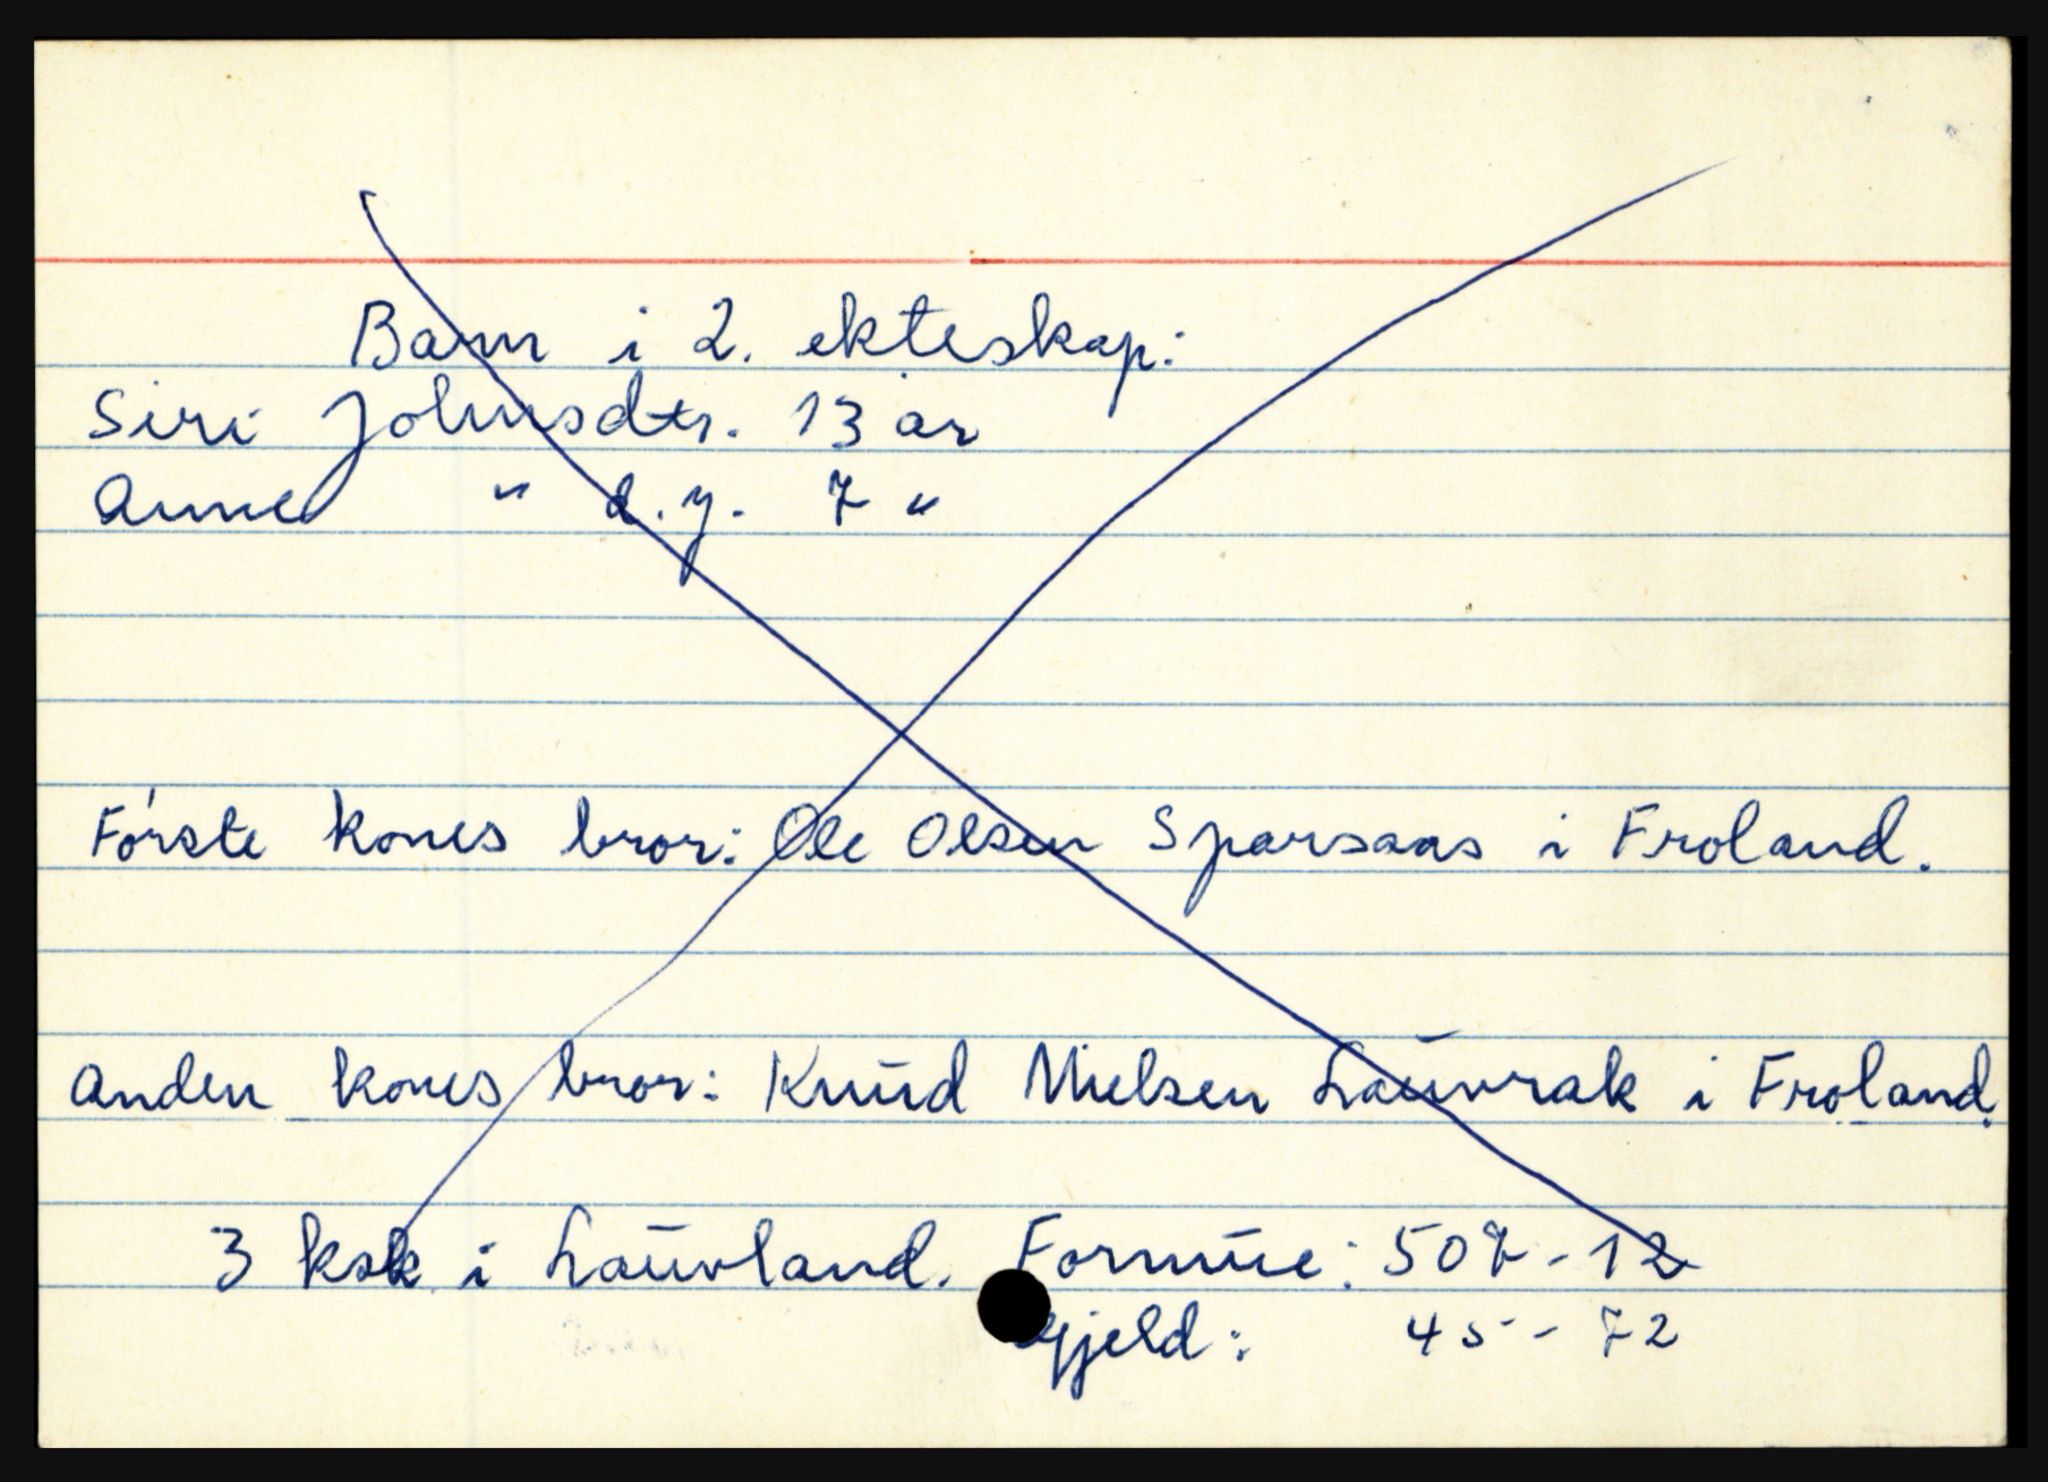 Barn i 2. ekteskap:
Siri Johnsdtr. 13 år
Anne " d.y. 7 "
Første kones bror: Ole Olsen Sparsaas i Froland.
Anden kones bror: Knud Nielsen Lauvrak i Froland.
3 ksk i Lauvland. Formue: 507 - 12
Gjeld: 45 - 72